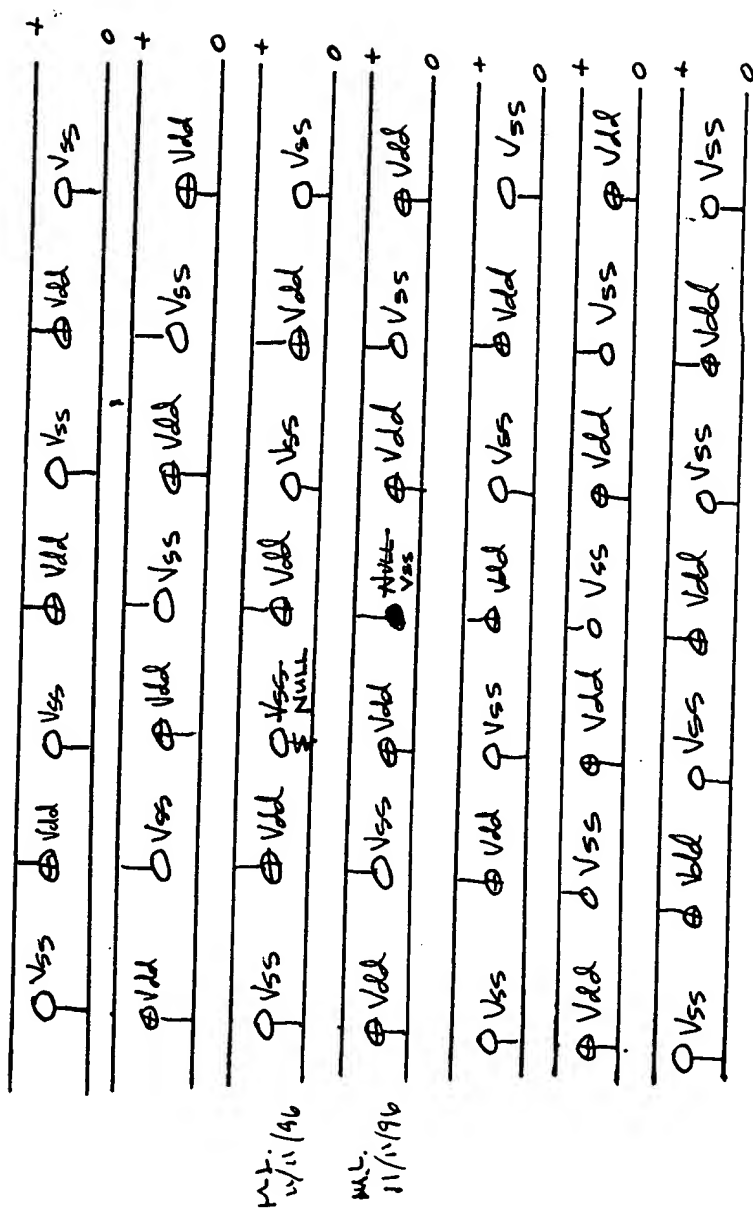 +
Vss Vdd Vss Vdd Vss Vdd Vss
0
+
Vdd Vss Vdd Vss Vdd Vss Vdd
0
+
Vss Vdd Vss Vdd Vss Vdd Vss
NULL
0
M.L.
11/11/96
+
Vdd Vss Vdd NULL Vdd Vss Vdd
Vss
0
M.L.
11/11/96
+
Vss Vdd Vss Vdd Vss Vdd Vss
0
+
Vdd Vss Vdd Vss Vdd Vss Vdd
0
+
Vss Vdd Vss Vdd Vss Vdd Vss
0